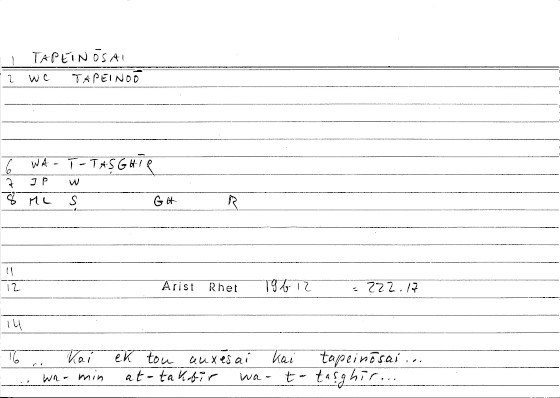 1 TAPEINŌSAI
2 WC TAPEINOŌ
6 WA-T-TAṢGHĪR
7 JP W
8 ML Ṣ GH R
11
12 Arist Rhet 19b12 = 222.17
14
16 .. Kai ek tou auxēsai kai tapeinōsai...
.. wa-min at-takbīr wa-t-taṣghīr...